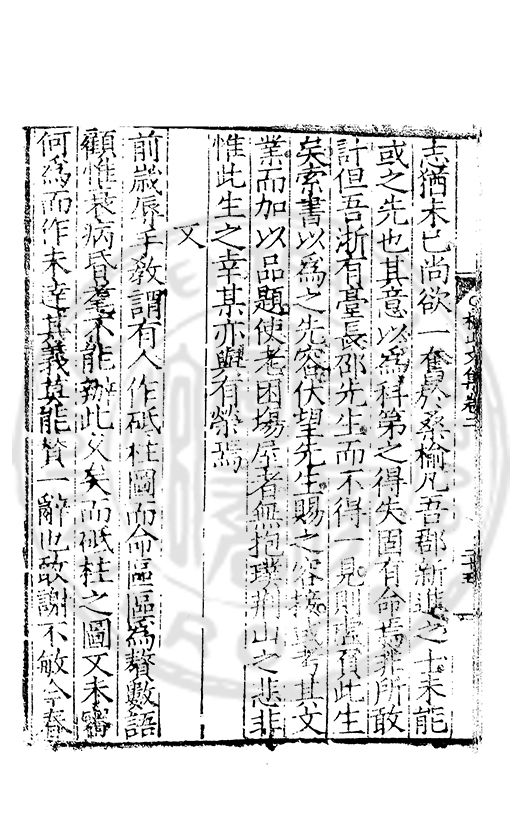 志猶未已尚欲一奮於桑榆凡吾郡新進之士未能
或之先也其意以為科第之得失固有命焉非所敢
計但吾浙有臺長邵先生而不得一見則虛負此生
矣索書以為之先容伏望先生賜之容接試考其文
業而加以品題使老困場屋者無抱璞荆山之悲非
惟此生之幸某亦與有榮焉
又
前歲辱手教謂有人作砥柱圖而命區區為贅數語
顧惟衰病昏耄不能辦此久矣而砥柱之圖又未審
何為而作未達其義莫能贊一辭也敢謝不敏今春
文集卷二
二十五